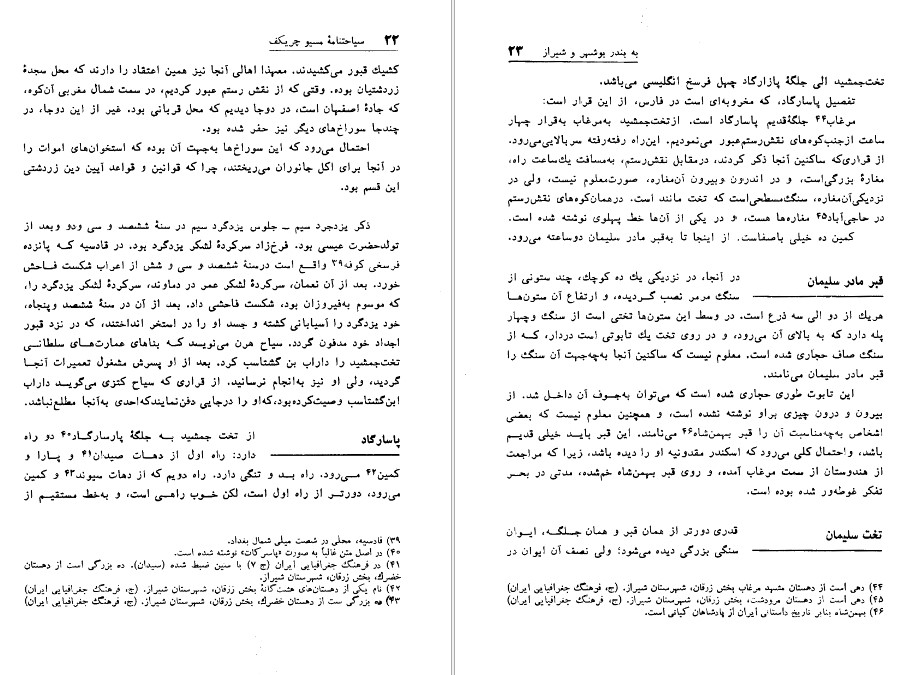 ۲۲ سیاحتنامهٔ مسیو چریکف
کشیك قبور می‌کشیدند. معهذا اهالی آنجا نیز همین اعتقاد را دارند که محل سجدهٔ
زردشتیان بوده. وقتی که از نقش رستم عبور کردیم، در سمت شمال مغربی آن‌کوه،
که جادهٔ اصفهان است، در دوجا دیدیم که محل قربانی بود. غیر از این دوجا، در
چندجا سوراخ‌های دیگر نیز حفر شده بود.
احتمال می‌رود که این سوراخ‌ها به‌جهت آن بوده که استخوان‌های اموات را
در آنجا برای اکل جانوران می‌ریختند، چرا که قوانین و قواعد آیین دین زردشتی
این قسم بود.
ذکر یزدجرد سیم ــ جلوس یزدگرد سیم در سنهٔ ششصد و سی ودو وبعد از
تولدحضرت عیسی بود. فرخ‌زاد سرکردهٔ لشکر یزدگرد بود. در قادسیه که پانزده
فرسخی کوفه۳۹ واقع است درسنهٔ ششصد و سی و شش از اعراب شکست فاحشی
خورد. بعد از آن نعمان، سرکردهٔ لشکر عمر در دماوند، سرکردهٔ لشکر یزدگرد را،
که موسوم به‌فیروزان بود، شکست فاحشی داد. بعد از آن در سنهٔ ششصد وپنجاه،
خود یزدگرد را آسیابانی کشته و جسد او را در استخر انداختند، که در نزد قبور
اجداد خود مدفون گردد. سیاح هرن می‌نویسد کـه بناهای عمارت‌های سلطانـی
تخت‌جمشید را داراب بن گشتاسب کرد. بعد از او پسرش مشغول تعمیرات آنجـا
گردید، ولی او نیز به‌انجام نرسانید. از قراری که سیاح کنزی می‌گویـد داراب
ابن‌گشتاسب وصیت‌کرده‌بود،که‌او را درجایی دفن‌نمایندکه‌احدی به‌آنجا مطلع‌نباشد.
پاسارگاد
از تخت جمشید بـه جلگهٔ پارسارگاد۴۰ دو راه
دارد: راه اول از دهـات صیدان۴۱ و پـارا و
کمین۴۲ می‌رود، راه بـد و تنگی دارد. راه دویم که از دهات سیوند۴۳ و کمین
می‌رود، دورتـر از راه اول است، لکن خوب راهـی است، و به‌خط مستقیم از
۳۹) قادسیه، محلی در شصت میلی شمال بغداد.
۴۰) در اصل متن غالباً به صورت «پاسرکات» نوشته شده است.
۴۱) در فرهنگ جغرافیایی ایران (ج ۷) با سین ضبط شده (سیدان). ده بزرگی است از دهستان
خفرك، بخش زرقان، شهرستان شیراز.
۴۲) نام یکی از دهستان‌های هشت‌گانهٔ بخش زرقان، شهرستان شیراز. (ج، فرهنگ جغرافیایی ایران)
۴۳) ده بزرگی ست از دهستان خفرك، بخش زرقان، شهرستان شیراز. (ج، فرهنگ جغرافیایی ایران)
به بندر بوشهر و شیراز ۲۳
تخت‌جمشید الی جلگهٔ پازارگاد چهل فرسخ انگلیسی می‌باشد.
تفصیل پاسارگاد، که مخروبه‌ای است در فارس، از این قرار است:
مرغاب۴۴ جلگهٔ‌قدیم پاسارگاد است. ازتخت‌جمشید به‌مرغاب به‌قرار چهار
ساعت ازجنب‌کوه‌های نقش‌رستم‌عبور می‌نمودیم. این‌راه رفته‌رفته سربالایی‌می‌رود.
از قراری‌که ساکنین آنجا ذکر کردند، درمقابل نقش‌رستم، به‌مسافت یك‌ساعت راه،
مغارهٔ بزرگی‌است، و در اندرون وبیرون آن‌مغاره، صورت‌معلوم نیست، ولی در
نزدیکی‌آن‌مغاره، سنگ‌مسطحی‌است که تخت مانند است. درهمان‌کوه‌های نقش‌رستم
در حاجی‌آباد۴۵ مغاره‌ها هست، و در یکی از آن‌ها خط پهلوی نوشته شده است.
کمین ده خیلی باصفاست. از اینجا تا به‌قبر مادر سلیمان دوساعته می‌رود.
قبر مادر سلیمان
در آنجا، در نزدیکی یك ده کوچك، چند ستونی از
سنگ مرمر نصب گـردیده، و ارتفاع آن ستون‌هـا
هریك از دو الی سه ذرع است. در وسط این ستون‌ها تختی است از سنگ وچهار
پله دارد که به بالای آن می‌رود، و در روی تخت یك تابوتی است دردار، کـه از
سنگ صاف حجاری شده است. معلوم نیست که ساکنین آنجا به‌چه‌جهت آن سنگ را
قبر مادر سلیمان می‌نامند.
این تابوت طوری حجاری شده است که می‌توان به‌جوف آن داخل شد. از
بیرون و درون چیزی براو نوشته نشده است، و همچنین معلوم نیست که بعضی
اشخاص به‌چه‌مناسبت آن را قبر بهمن‌شاه۴۶ می‌نامند. این قبر بایـد خیلی قدیـم
باشد، واحتمال کلی می‌رود که اسکندر مقدونیه او را دیده باشد، زیرا که مراجعت
از هندوستان از سمت مرغاب آمده، و روی قبر بهمن‌شاه خم‌شده، مدتی در بحـر
تفکر غوطه‌ور شده بوده است.
تخت سلیمان
قدری دورتر از همان قبر و همان جـلـگـه، ایـوان
سنگی بزرگی دیده می‌شود؛ ولی نصف آن ایوان در
۴۴) دهی است از دهستان مشهد مرغاب بخش زرقان، شهرستان شیراز. (ج، فرهنگ جغرافیایی ایران)
۴۵) دهی است از دهستان مرودشت، بخش زرقان، شهرستان شیراز. (ج، فرهنگ جغرافیایی ایران)
۴۶) بهمن‌شاه بنابر تاریخ داستانی ایران از پادشاهان کیانی است.